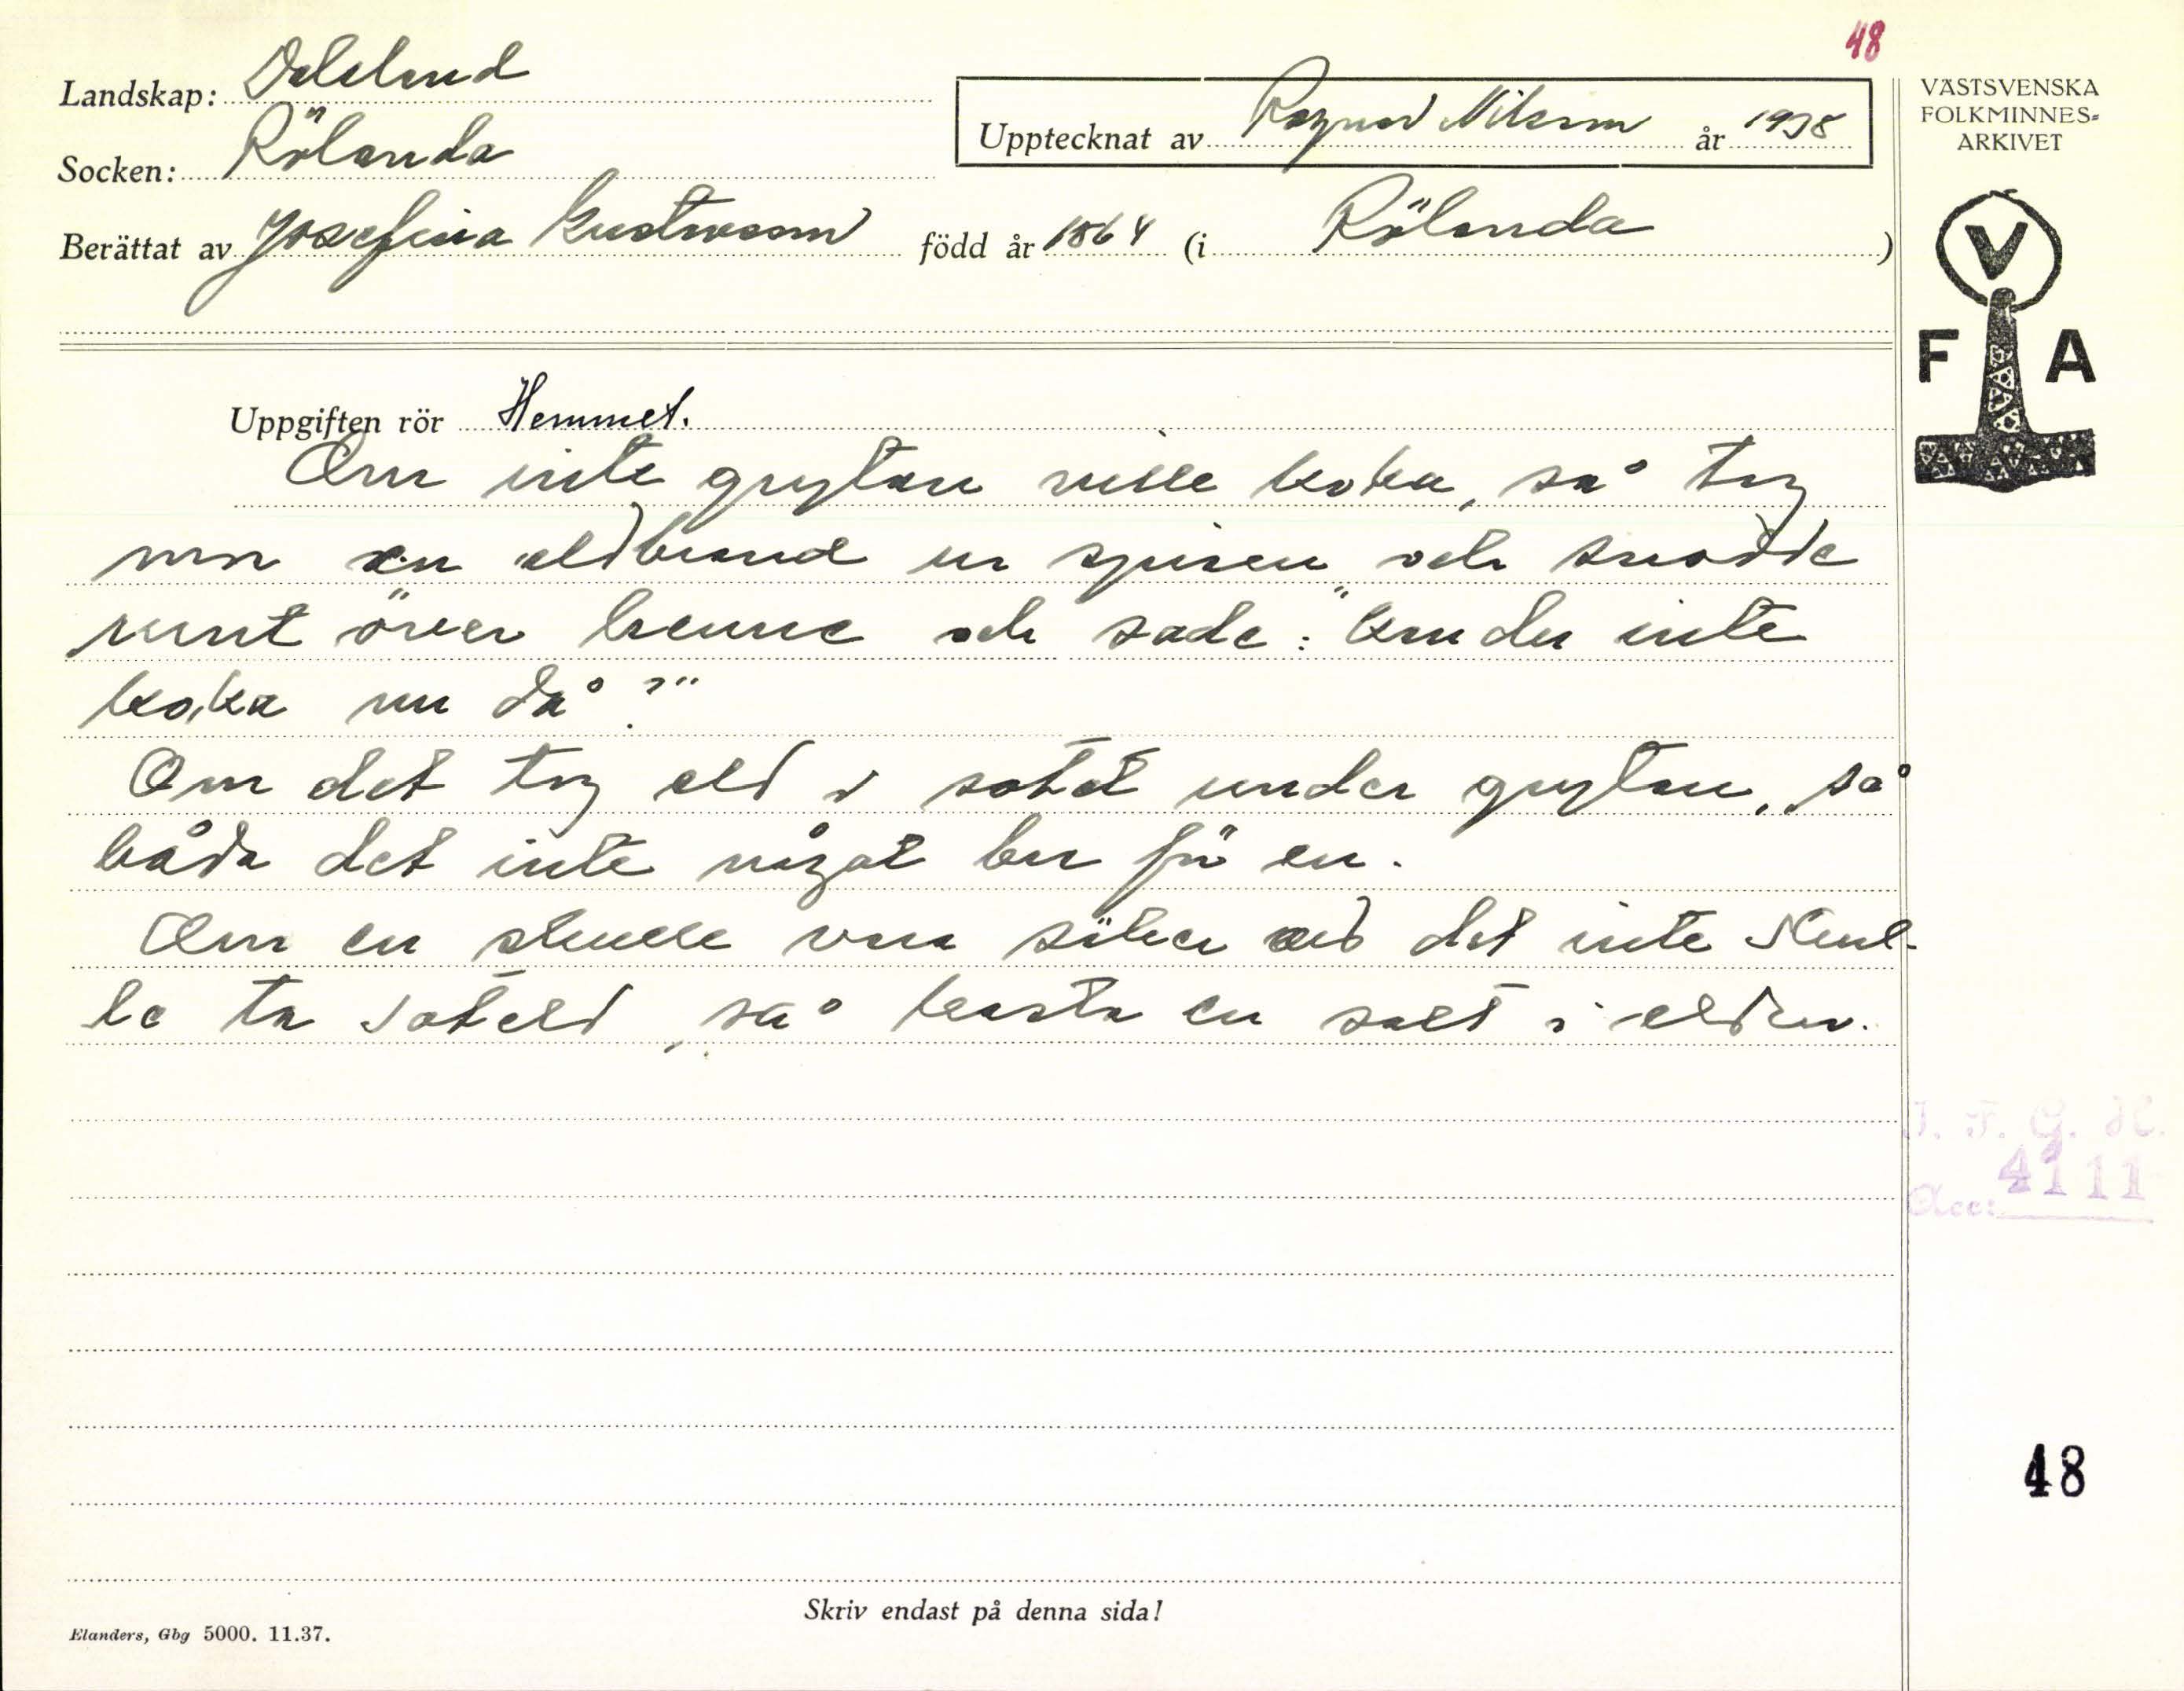 48
Landskap: Dalsland
Socken: Rölanda
Upptecknat av Ragnar Nilsson år 1938
Berättat av Josefina Gustavsson född år 1864 (i Rölanda)
VÄSTSVENSKA
FOLKMINNES=
ARKIVET
V
F A
Uppgiften rör Hemmet.
Om inte grytan ville koka, så tog
mn en eldbrand ur spisen och snodde
runt över henne och sade: "Om du inte
koka nu då?"
Om det tog eld i sotet under grytan, så
båda det inte något bra för en.
Om en skulle vara säker att det inte skul-
le ta soteld, så kasta en salt i elden.
I. F. G. H.
Acc: 4111
48
Skriv endast på denna sida!
Elanders, Gbg 5000. 11.37.